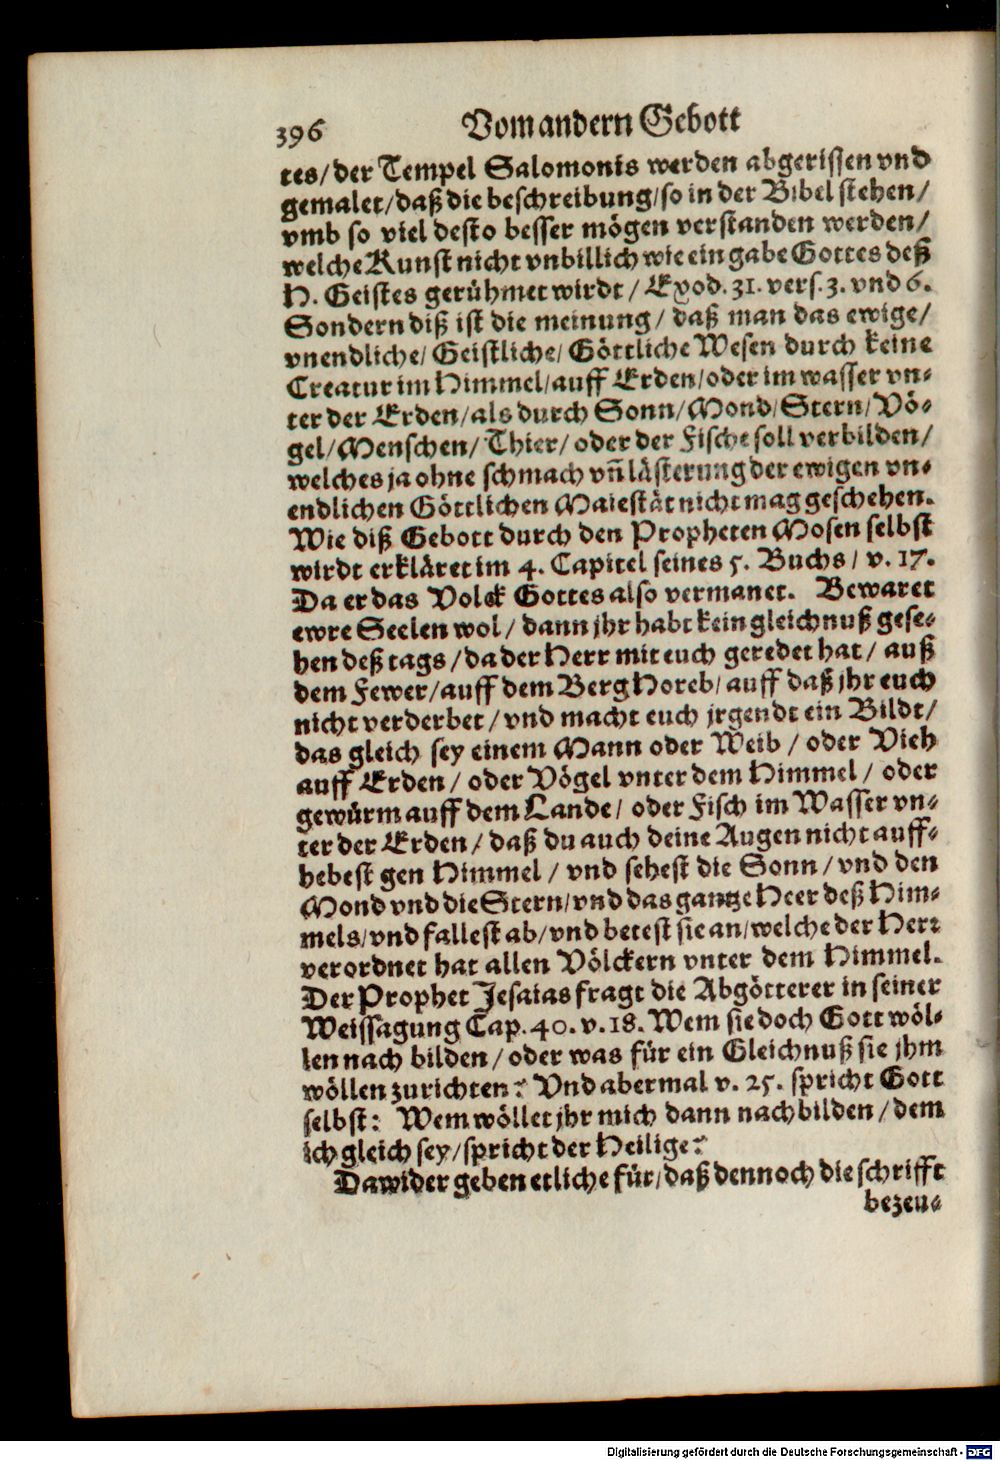 396 Vom andern Gebott
tes/der Tempel Salomonis werden abgerissen vnd
gemalet/daß die beschreibung/so in der Bibel stehen/
vmb so viel desto besser mögen verstanden werden/
welche Kunst nicht vnbillich wie ein gabe Gottes deß
H. Geistes gerühmet wirdt/ Exod. 31. vers. 3. vnd 6.
Sondern diß ist die meinung/ daß man das ewige/
vnendliche/ Geistliche/ Göttliche Wesen durch keine
Creatur im Himmel/auff Erden/oder im wasser vn-
ter der Erden/als durch Sonn/Mond/Stern/Vö-
gel/Menschen/Thier/oder der Fische soll verbilden/
welches ja ohne schmach vñ lästerung der ewigen vn-
endlichen Göttlichen Maiestät nicht mag geschehen.
Wie diß Gebott durch den Propheten Mosen selbst
wirdt erkläret im 4. Capitel seines 5. Buchs/ v. 17.
Da er das Volck Gottes also vermanet. Bewaret
ewre Seelen wol/ dann jhr habt kein gleichnuß gese-
hen deß tags/da der Herr mit euch geredet hat/ auß
dem Fewer/auff dem Berg Horeb/ auff daß jhr euch
nicht verderbet/vnd macht euch jrgendt ein Bildt/
das gleich sey einem Mann oder Weib/oder Vieh
auff Erden/ oder Vögel vnter dem Himmel/ oder
gewürm auff dem Lande/ oder Fisch im Wasser vn-
ter der Erden/ daß du auch deine Augen nicht auff-
hebest gen Himmel/ vnd sehest die Sonn/vnd den
Mond vnd die Stern/vnd das gantze Heer deß Him-
mels/vnd fallest ab/vnd betest sie an/welche der Herr
verordnet hat allen Völckern vnter dem Himmel.
Der Prophet Jesaias fragt die Abgötterer in seiner
Weissagung Cap. 40. v. 18. Wem sie doch Gott wöl-
len nach bilden/oder was für ein Gleichnuß sie jhm
wöllen zurichten? Vnd abermal v. 25. spricht Gott
selbst: Wem wöllet jhr mich dann nachbilden/dem
ich gleich sey/spricht der Heilige?
Dawider geben etliche für/daß dennoch die schrifft
bezeu-
Digitalisierung gefördert durch die Deutsche Forschungsgemeinschaft - DFG